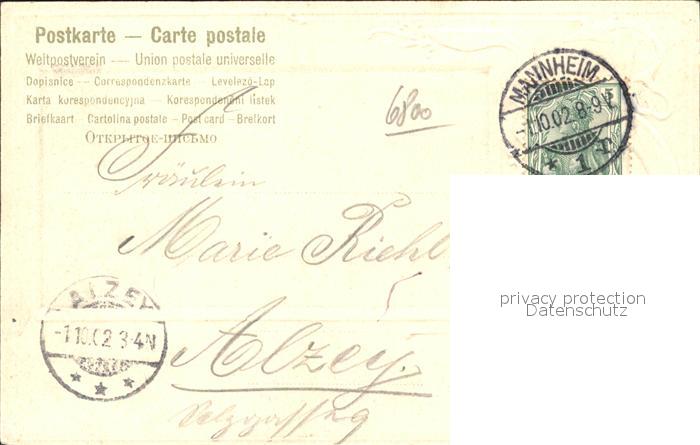 Postkarte — Carte postale
Weltpostverein — Union postale universelle
Dopisnice — Correspondenzkarte — Levelező-Lap
Karta korespondencyjna — Korespondenční lístek
Briefkaart — Cartolina postale — Post card — Brefkort
Открытое-письмо
6800
MANNHEIM
-1.10.02. 8-9V
* 1 r
5
Fräulein
Marie Riehl
ALZEY
-1.10.02 3-4N
* * *
Alzey.
privacy protection
Datenschutz